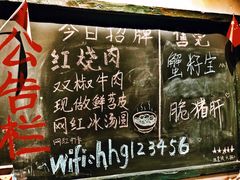 公告栏
今日招牌
红烧肉
双椒牛肉
现做鲜苕皮
网红冰汤圆
网红打卡
wifi:hhg123456
售完
蟹籽宝
脆猪肝